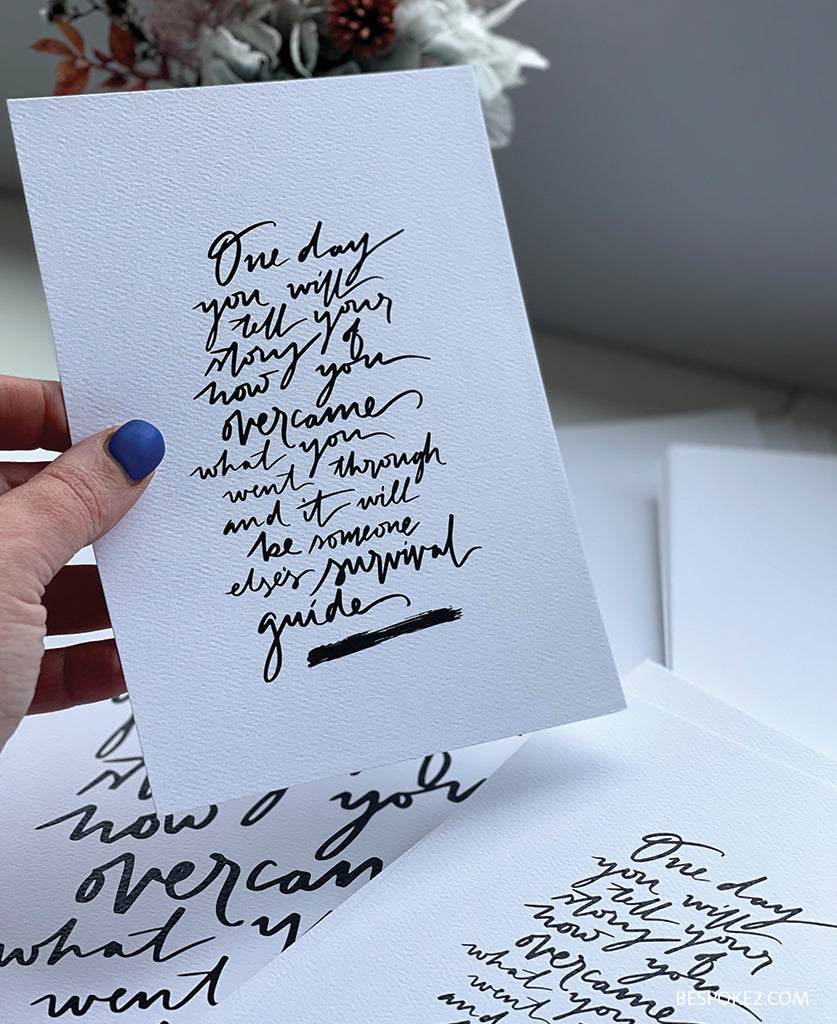 One day
you will
tell your
story of
how you
overcame
what you
went through
and it will
be someone
else's survival
guide
story
how you
overcam
what yo
went
One day
you will
tell your
story of
how you
overcame
what you
went
and
BESPOKE2.COM